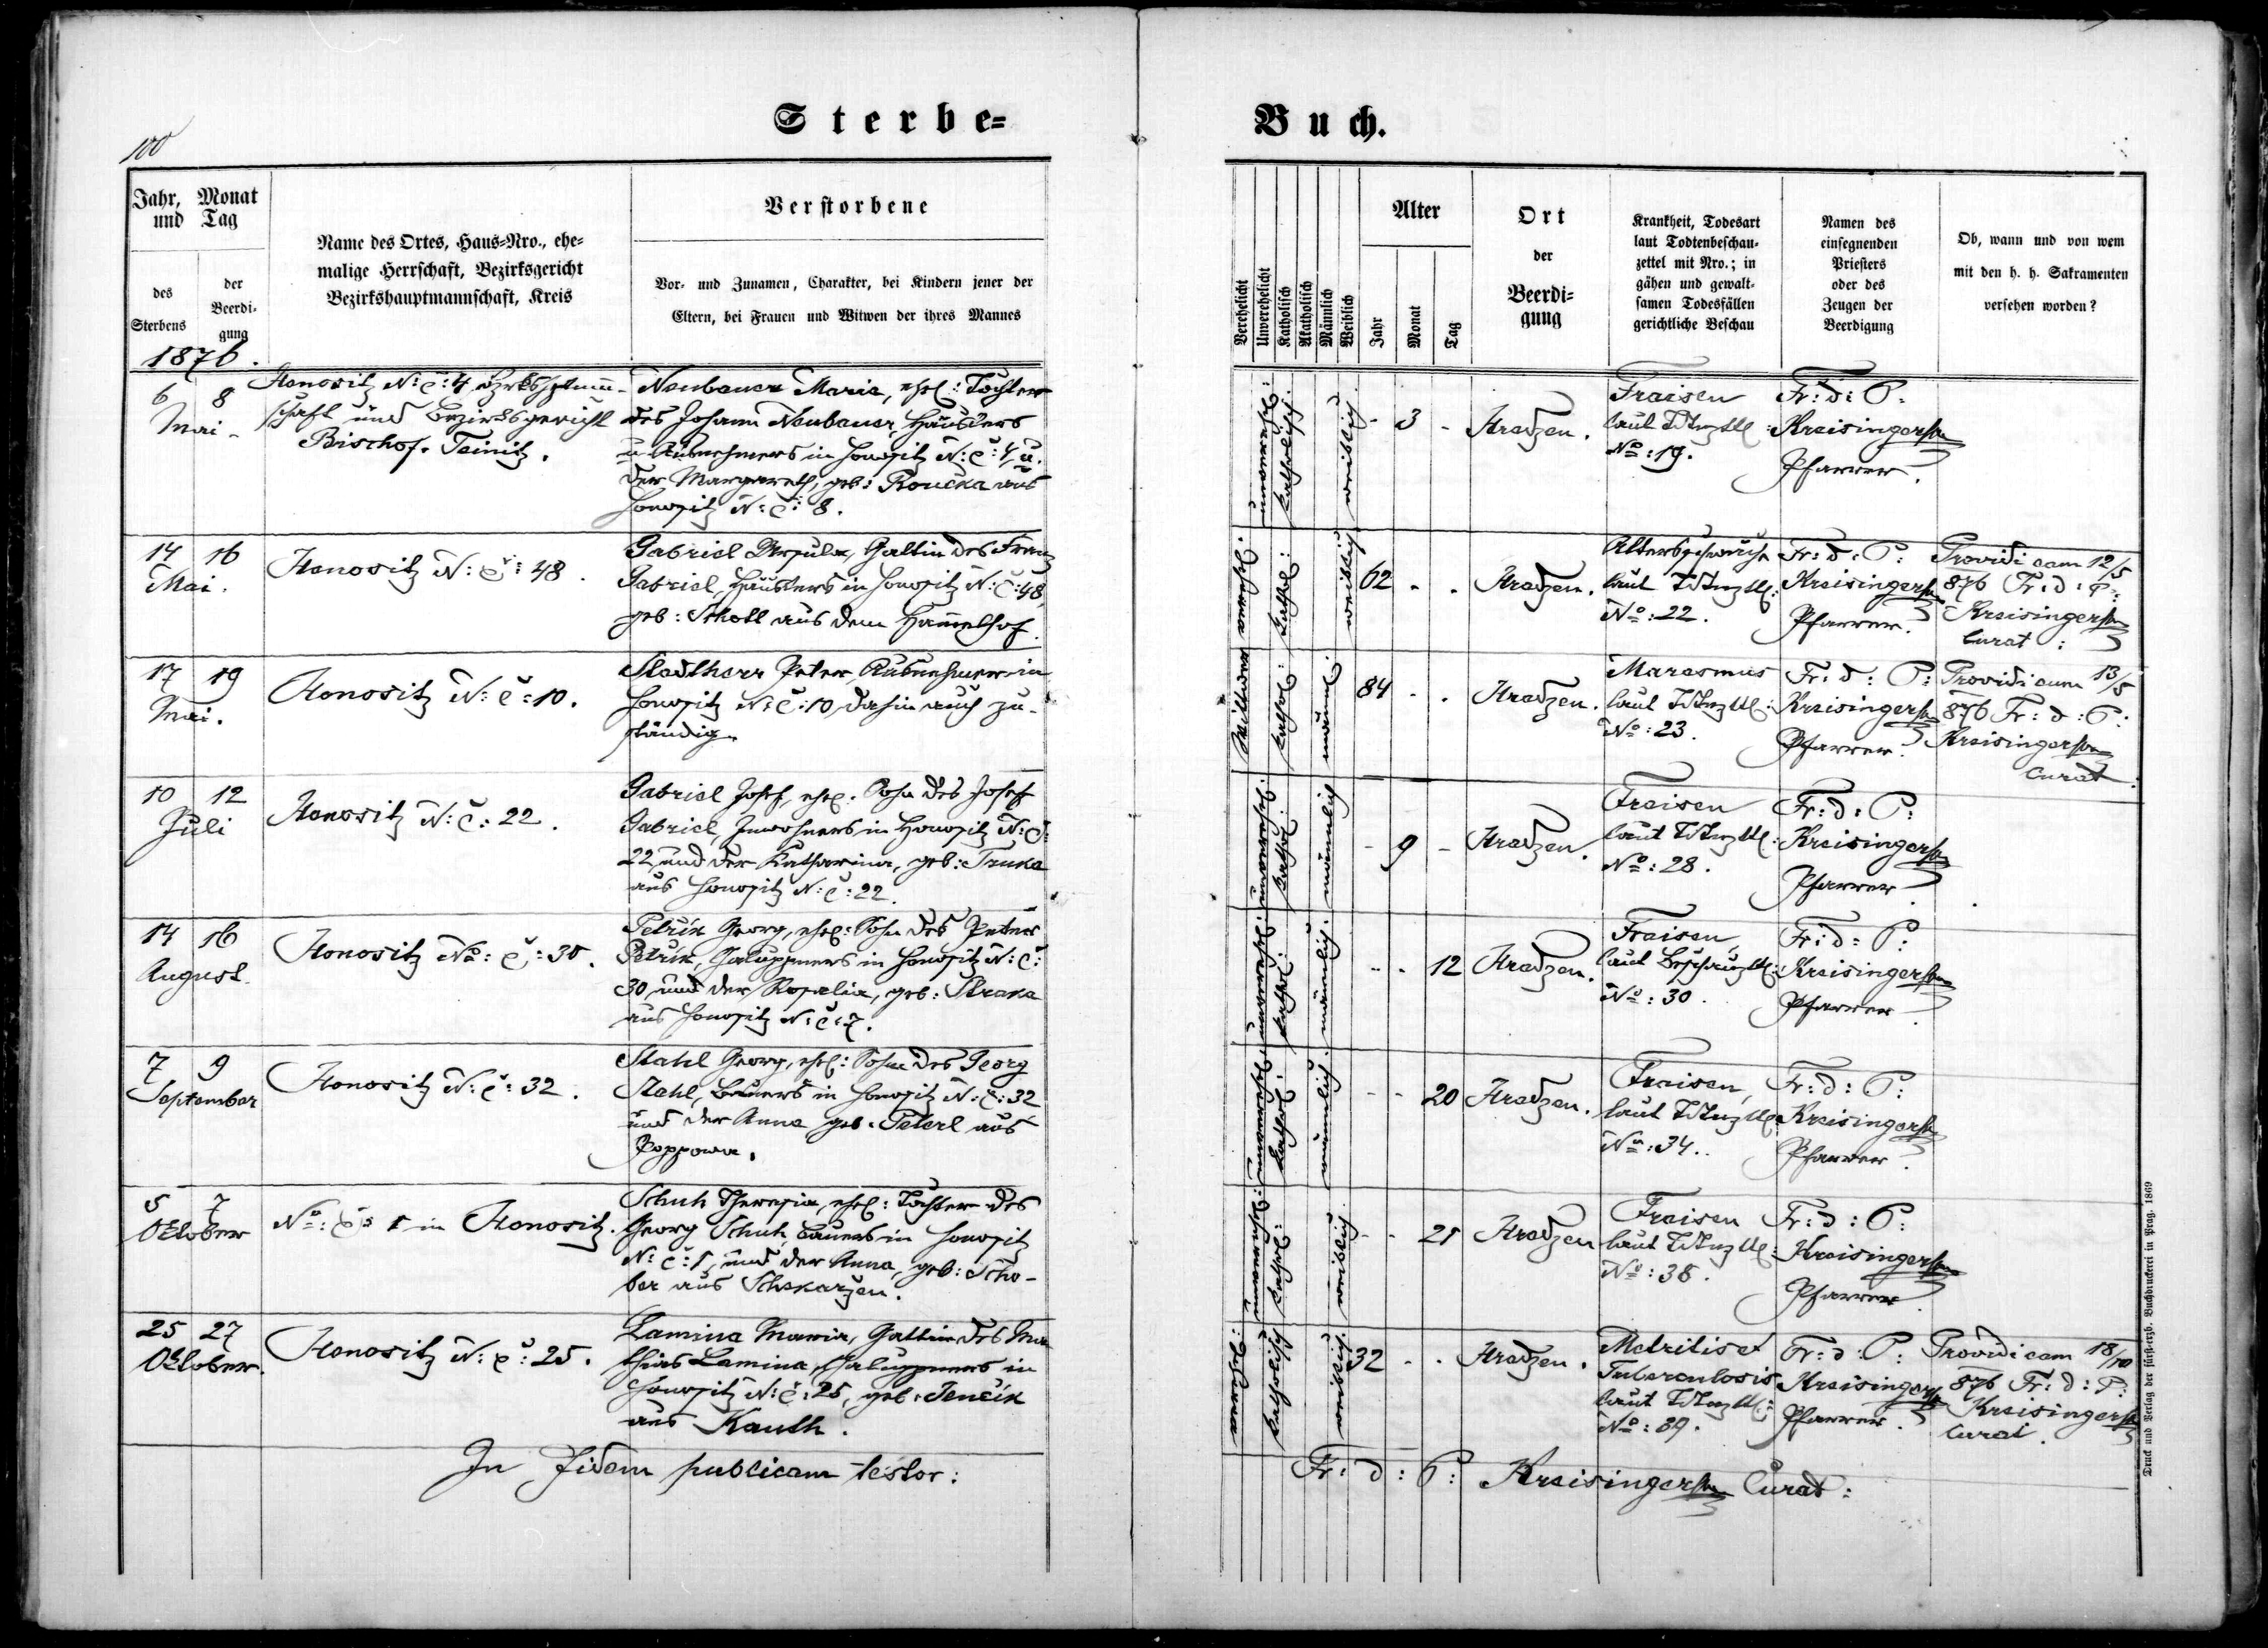 100
Sterbe=
Buch.
Jahr, Monat
und Tag
des
Sterbens
der
Beerdi-
gung
Name des Ortes, Haus-Nro., ehe-
malige Herrschaft, Bezirksgericht
Bezirkshauptmannschaft, Kreis
Verstorbene
Vor- und Zunamen, Charakter, bei Kindern jener der
Eltern, bei Frauen und Witwen der ihres Mannes
Verehelicht
Unverehelicht
Katholisch
Akatholisch
Männlich
Weiblich
Alter
Jahr
Monat
Tag
Ort
der
Beerdi-
gung
Krankheit, Todesart
laut Todtenbeschau-
zettel mit Nro.; in
gähen und gewalt-
samen Todesfällen
gerichtliche Beschau
Namen des
einsegnenden
Priesters
oder des
Zeugen der
Beerdigung
Ob, wann und von wem
mit den h. h. Sakramenten
versehen worden?
1876.
6 8
Mai
Honositz N: č: 4
schaft und Bezirksgericht
Bischof-Teinitz.
Neubauer Maria, ehel: Tochter
des Johann Neubauer, Häuslers
u. Ausnehmers in Honositz N: č: 4, u.
der Margareth, geb: Roučka aus
Honositz N: č: 8.
unverehel:
katholisch
weiblich
- 3 -
Hradzen.
Fraisen
laut
No: 19.
Fr: d: P:
Kreisinger
Pfarrer.
14 16
Mai.
Honositz N: č: 48.
Gabriel Ursula, Gattin des Franz
Gabriel, Häuslers in Honositz N: č: 48,
geb: Scholl aus dem Hammelhof.
kathol:
weiblich
62 . .
Hradzen.
Altersschwäche
laut
No: 22.
Fr: d: P:
Kreisinger
Pfarrer.
Providi eam 12/5
876 Fr: d: P:
Kreisinger
Curat:
17 19
Mai.
Honositz N: č: 10.
Stadtherr Peter, Ausnehmer in
Honositz N: č: 10, dahin auch zu-
ständig.
Wittwer
kathol:
männl:
84 . .
Hradzen.
Marasmus
laut
No: 23.
Fr: d: P:
Kreisinger
Pfarrer.
Providi eum 13/5
876 Fr: d: P:
Kreisinger
Curat.
10 12
Juli
Honositz N: č: 22.
Gabriel Josef, ehel: Sohn des Josef
Gabriel, Inwohners in Honositz N: č:
22 und der Katharina, geb: Truka
aus Honositz N: č: 22.
unverehel:
kathol:
männlich
- 9 -
Hradzen.
Fraisen
laut
No: 28.
Fr: d: P:
Kreisinger
Pfarrer
14 16
August.
Honositz No: č: 30.
Petřik Georg, ehel: Sohn des Peter
Petřik, Chaluppners in Honositz N: č:
30 und der Rosalia, geb: Straka
aus Honositz N: č: 7.
unverehel:
kathol:
männlich
- - 12
Hradzen.
Fraisen,
laut
No: 30.
Fr: d: P:
Kreisinger
Pfarrer
7 9
September
Honositz N: č: 32.
Stahl Georg, ehel: Sohn des Georg
Stahl, Bauers in Honositz N: č: 32
und der Anna geb: Peterl aus
Poppowa.
unverehel:
kathol:
männlich
- - 20
Hradzen.
Fraisen,
laut
No: 34.
Fr: d: P:
Kreisinger
Pfarrer
5 7
Oktober
No: č: 1 in Honositz.
Schuh Theresia, ehel: Tochter des
Georg Schuh, Bauers in Honositz
N: č: 1, und der Anna, geb: Scho-
ber aus Schekarzen.
unverehel:
kathol:
weiblich
- - 21
Hradzen
Fraisen
laut
No: 38.
Fr: d: P:
Kreisinger
Pfarrer
25 27
Oktober.
Honositz N: č: 25.
Lamina Maria, Gattin des Ma
thias Lamina, Chaluppners in
Honositz N: č: 25, geb: Jenčik
aus Kauth.
katholisch
weiblich
32 . .
Hradzen.
Metritis et
Tuberculosis
laut
No: 39.
Fr: d: P:
Kreisinger
Pfarrer.
Providi eam 18/10
876 Fr: d: P:
Kreisinger
Curat.
In fidem publicam testor:
Fr: d: P: Kreisinger Curat:
Druck und Verlag der fürst-erzb. Buchdruckerei in Prag. 1869